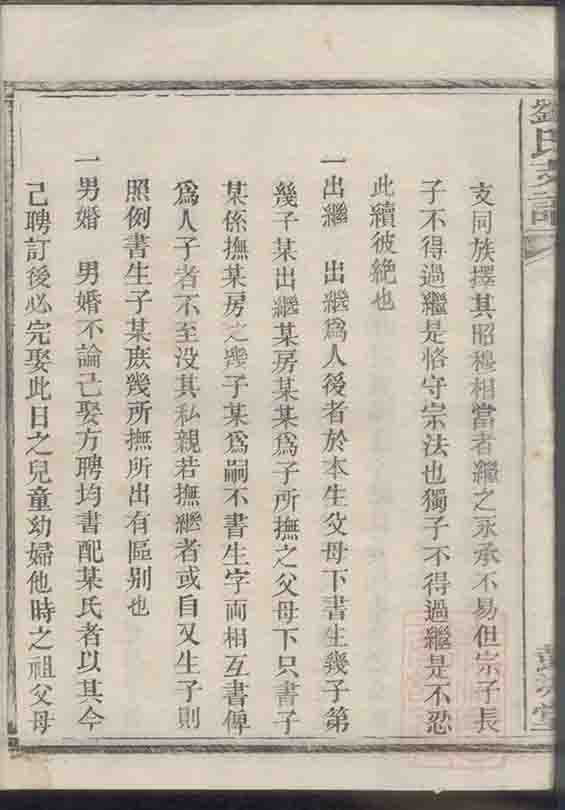 劉氏支譜
支同族擇其昭穆相當者繼之永承不易但宗子長
子不得過繼是恪守宗法也獨子不得過繼是不忍
此續彼絶也
一出繼　出繼爲人後者於本生父母下書生幾子第
幾子某出繼某房某某爲子所撫之父母下只書子
某係撫某房之幾子某爲嗣不書生字兩相互書俾
爲人子者不至没其私親若撫繼者或自又生子則
照例書生子某庶幾所撫所出有區别也
一男婚　男婚不論已娶方聘均書配某氏者以其今
己聘訂後必完娶此日之兒童幼婦他時之祖父母